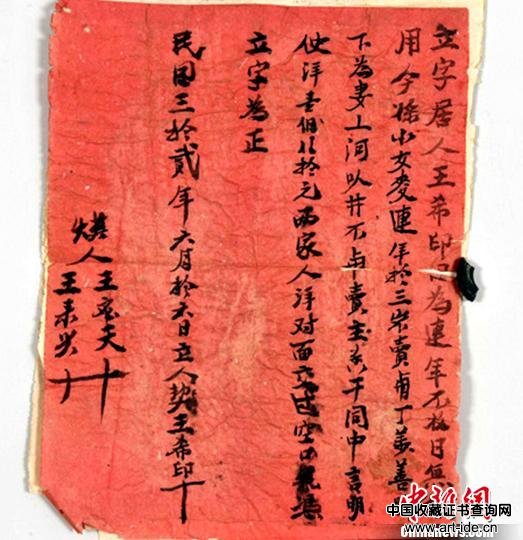 立字居人王希印因為連年不收日無
用今將小女變連年拾三岁賣甫丁美善
下為妻上河以井不与賣主相干同中言明
使洋壹佰拾元两家人洋对面交过空口
立字為正
民国三拾贰年六月拾六日立人契王希印十
媒人王天十
王来兴十
中新網
中国收藏证书查询网
www.art-ide.cn
chinanews.com